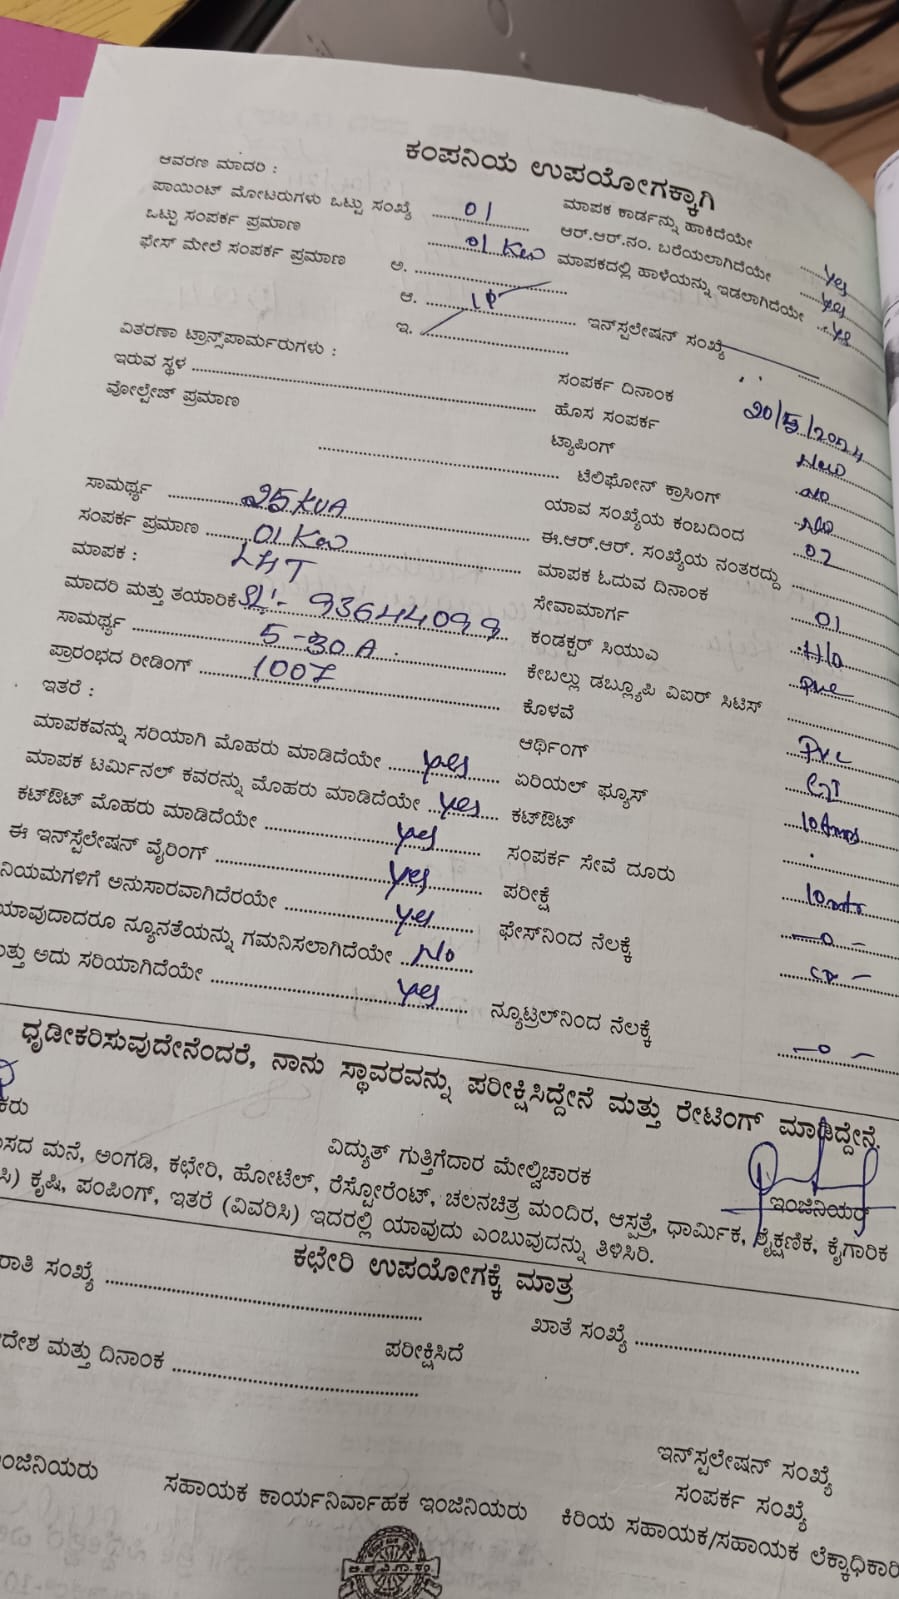 ಕಂಪನಿಯ ಉಪಯೋಗಕ್ಕಾಗಿ
ಆವರಣ ಮಾದರಿ :
ಪಾಯಿಂಟ್ ಮೋಟರುಗಳು ಒಟ್ಟು ಸಂಖ್ಯೆ 01
ಒಟ್ಟು ಸಂಪರ್ಕ ಪ್ರಮಾಣ 01 Kw
ಫೇಸ್ ಮೇಲೆ ಸಂಪರ್ಕ ಪ್ರಮಾಣ ಅ.
ಆ. 1Φ
ಇ.
ವಿತರಣಾ ಟ್ರಾನ್ಸ್‌ಪಾರ್ಮರುಗಳು :
ಇರುವ ಸ್ಥಳ
ವೋಲ್ಟೇಜ್ ಪ್ರಮಾಣ
ಸಾಮರ್ಥ್ಯ 25 KVA
ಸಂಪರ್ಕ ಪ್ರಮಾಣ 01 Kw
ಮಾಪಕ : L&T
ಮಾದರಿ ಮತ್ತು ತಯಾರಿಕೆ SL:- 93644099
ಸಾಮರ್ಥ್ಯ 5-30A
ಪ್ರಾರಂಭದ ರೀಡಿಂಗ್ 1007
ಇತರೆ :
ಮಾಪಕವನ್ನು ಸರಿಯಾಗಿ ಮೊಹರು ಮಾಡಿದೆಯೇ yes
ಮಾಪಕ ಟರ್ಮಿನಲ್ ಕವರನ್ನು ಮೊಹರು ಮಾಡಿದೆಯೇ yes
ಕಟ್‌ಔಟ್ ಮೊಹರು ಮಾಡಿದೆಯೇ yes
ಈ ಇನ್‌ಸ್ಟಲೇಷನ್ ವೈರಿಂಗ್ yes
ನಿಯಮಗಳಿಗೆ ಅನುಸಾರವಾಗಿದೆರಯೇ yes
ಯಾವುದಾದರೂ ನ್ಯೂನತೆಯನ್ನು ಗಮನಿಸಲಾಗಿದೆಯೇ No
ಮತ್ತು ಅದು ಸರಿಯಾಗಿದೆಯೇ yes
ಮಾಪಕ ಕಾರ್ಡನ್ನು ಹಾಕಿದೆಯೇ yes
ಆರ್.ಆರ್.ನಂ. ಬರೆಯಲಾಗಿದೆಯೇ yes
ಮಾಪಕದಲ್ಲಿ ಹಾಳೆಯನ್ನು ಇಡಲಾಗಿದೆಯೇ yes
ಇನ್‌ಸ್ಪಲೇಷನ್ ಸಂಖ್ಯೆ
ಸಂಪರ್ಕ ದಿನಾಂಕ 20/5/2024
ಹೊಸ ಸಂಪರ್ಕ New
ಟ್ಯಾಪಿಂಗ್ no
ಟೆಲಿಫೋನ್ ಕ್ರಾಸಿಂಗ್ No
ಯಾವ ಸಂಖ್ಯೆಯ ಕಂಬದಿಂದ 02
ಈ.ಆರ್.ಆರ್. ಸಂಖ್ಯೆಯ ನಂತರದ್ದು
ಮಾಪಕ ಓದುವ ದಿನಾಂಕ 01
ಸೇವಾಮಾರ್ಗ
ಕಂಡಕ್ಟರ್ ಸಿಯುಎ
ಕೇಬಲ್ಲು ಡಬ್ಲ್ಯೂಪಿ ವಿಐರ್ ಸಿಟಿಸ್
ಕೊಳವೆ PVC
ಆರ್ಥಿಂಗ್ GI
ಏರಿಯಲ್ ಫ್ಯೂಸ್ 10 Amps
ಕಟ್‌ಔಟ್
ಸಂಪರ್ಕ ಸೇವೆ ದೂರು 10mtr
ಪರೀಕ್ಷೆ
ಫೇಸ್‌ನಿಂದ ನೆಲಕ್ಕೆ
ನ್ಯೂಟ್ರಲ್‌ನಿಂದ ನೆಲಕ್ಕೆ
ಧೃಡೀಕರಿಸುವುದೇನೆಂದರೆ, ನಾನು ಸ್ಥಾವರವನ್ನು ಪರೀಕ್ಷಿಸಿದ್ದೇನೆ ಮತ್ತು ರೇಟಿಂಗ್ ಮಾಡಿದ್ದೇನೆ.
ವಿದ್ಯುತ್ ಗುತ್ತಿಗೆದಾರ ಮೇಲ್ವಿಚಾರಕ
ಇಂಜಿನಿಯರ್
ಮನೆ, ಅಂಗಡಿ, ಕಛೇರಿ, ಹೋಟೆಲ್, ರೆಸ್ಟೋರೆಂಟ್, ಚಲನಚಿತ್ರ ಮಂದಿರ, ಆಸ್ಪತ್ರೆ, ಧಾರ್ಮಿಕ, ಶೈಕ್ಷಣಿಕ, ಕೈಗಾರಿಕ
ಕೃಷಿ, ಪಂಪಿಂಗ್, ಇತರೆ (ವಿವರಿಸಿ) ಇದರಲ್ಲಿ ಯಾವುದು ಎಂಬುವುದನ್ನು ತಿಳಿಸಿರಿ.
ಕಛೇರಿ ಉಪಯೋಗಕ್ಕೆ ಮಾತ್ರ
ಸಂಖ್ಯೆ
ಖಾತೆ ಸಂಖ್ಯೆ
ಮತ್ತು ದಿನಾಂಕ
ಪರೀಕ್ಷಿಸಿದೆ
ಇನ್‌ಸ್ಪಲೇಷನ್ ಸಂಖ್ಯೆ
ಸಂಪರ್ಕ ಸಂಖ್ಯೆ
ಸಹಾಯಕ ಕಾರ್ಯನಿರ್ವಾಹಕ ಇಂಜಿನಿಯರು
ಕಿರಿಯ ಸಹಾಯಕ/ಸಹಾಯಕ ಲೆಕ್ಕಾಧಿಕಾರಿ